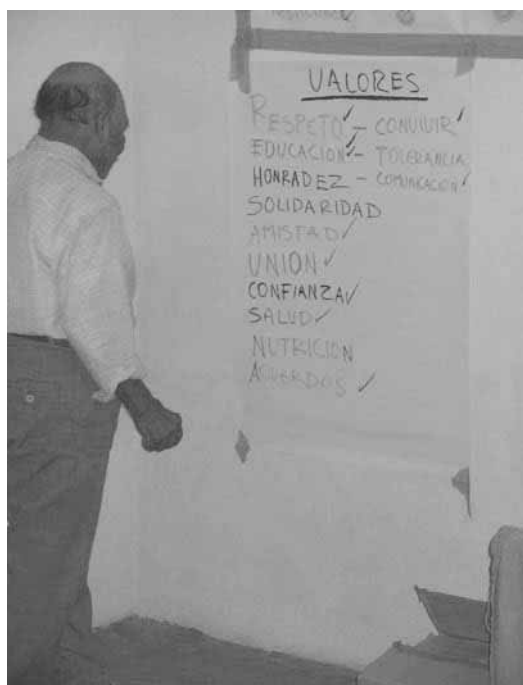 VALORES
RESPETO ✓ - CONVIVIR ✓
EDUCACION ✓ - TOLERANCIA
HONRADEZ - COMUNICACION ✓
SOLIDARIDAD
AMISTAD ✓
UNION ✓
CONFIANZA ✓
SALUD ✓
NUTRICION
ACUERDOS ✓